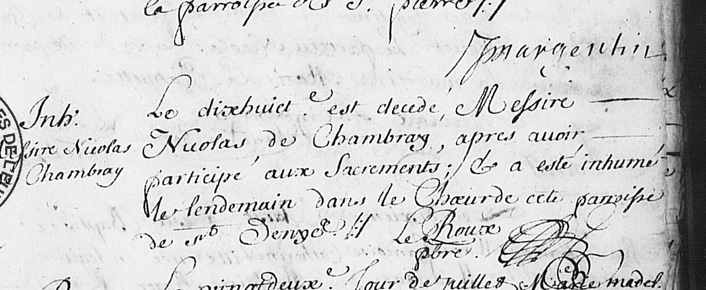 la parroisse de S. pierre //
Jmargentin
Inh.
sire Nicolas
Chambray
Le dixhuict.e est decedé, Messire
Nicolas de Chambray, apres avoir
participé aux Sacrements; & a esté inhumé
le lendemain dans le Chœur de cete parroisse
de st Denys //
Le Roux
pbre
Le vingtdeux.e Jour de juillet Marie madel.